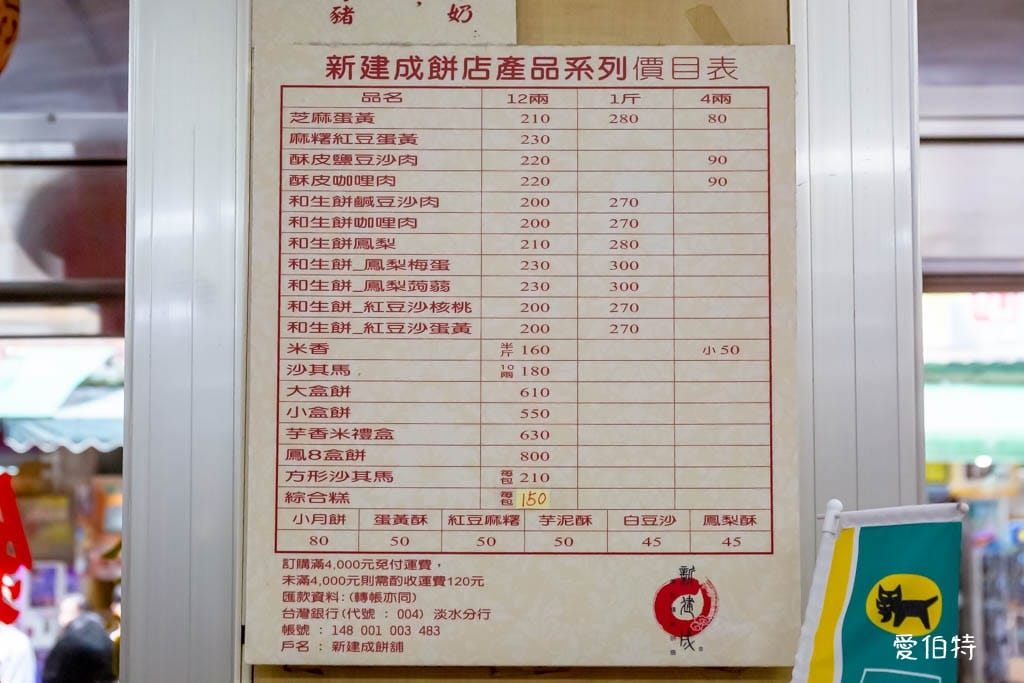 豬 ，奶
新建成餅店產品系列價目表
品名 12兩 1斤 4兩
芝麻蛋黃 210 280 80
麻糬紅豆蛋黃 230
酥皮鹽豆沙肉 220 90
酥皮咖哩肉 220 90
和生餅鹹豆沙肉 200 270
和生餅咖哩肉 200 270
和生餅鳳梨 210 280
和生餅_鳳梨梅蛋 230 300
和生餅_鳳梨蒟蒻 230 300
和生餅_紅豆沙核桃 200 270
和生餅_紅豆沙蛋黃 200 270
米香 半斤 160 小 50
沙其馬 10兩 180
大盒餅 610
小盒餅 550
芋香米禮盒 630
鳳8盒餅 800
方形沙其馬 每包 210
綜合糕 每包 150
小月餅 蛋黃酥 紅豆麻糬 芋泥酥 白豆沙 鳳梨酥
80 50 50 50 45 45
訂購滿4,000元免付運費，
未滿4,000元則需酌收運費120元
匯款資料:(轉帳亦同)
台灣銀行(代號 : 004) 淡水分行
帳號 : 148 001 003 483
戶名 : 新建成餅舖
新建成
愛伯特